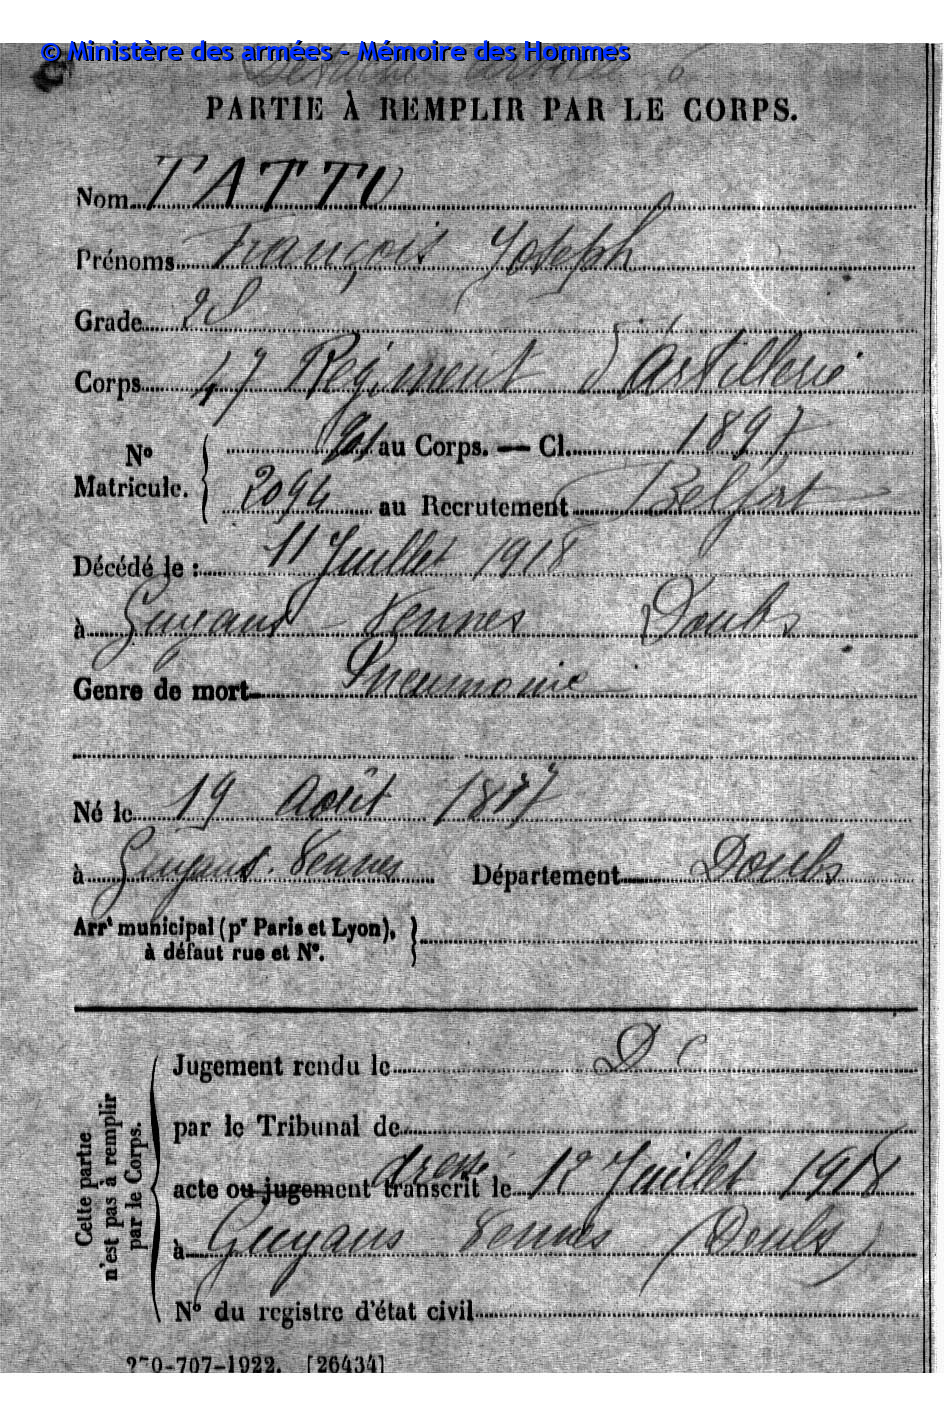 © Ministère des armées - Mémoire des Hommes
PARTIE À REMPLIR PAR LE CORPS.
Nom TATTU
Prénoms François Joseph
Grade
Corps 47 Régiment d'Artillerie
No Matricule. { au Corps. — Cl. 1897
2094 au Recrutement Belfort
Décédé le : 11 Juillet 1918
à Guyans - Vennes Doubs
Genre de mort Pneumonie
Né le 19 Août 1877
à Guyans. Vennes Département Doubs
Arrt municipal (pr Paris et Lyon), }
à défaut rue et No.
Cette partie
n'est pas à remplir
par le Corps.
Jugement rendu le D C
par le Tribunal de
dressé
acte ou jugement transcrit le 12 Juillet 1918
à Guyans Vennes (Doubs)
No du registre d'état civil
0-707-1922. [26434]